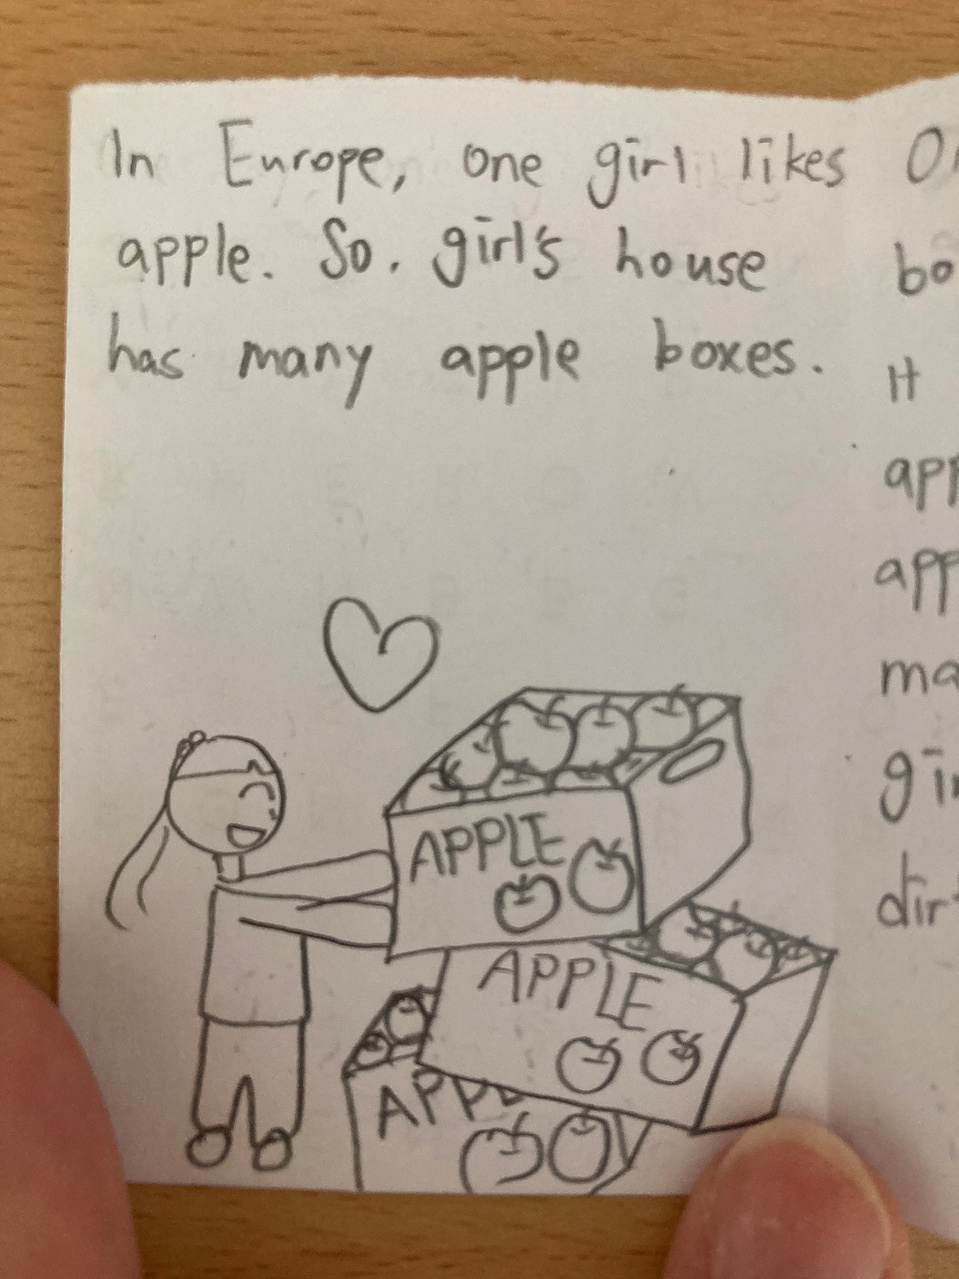 In Europe, one girl likes
apple. So. girl's house
has many apple boxes.
APPLE
APPLE
APPL
bo
It
app
app
ma
dirt